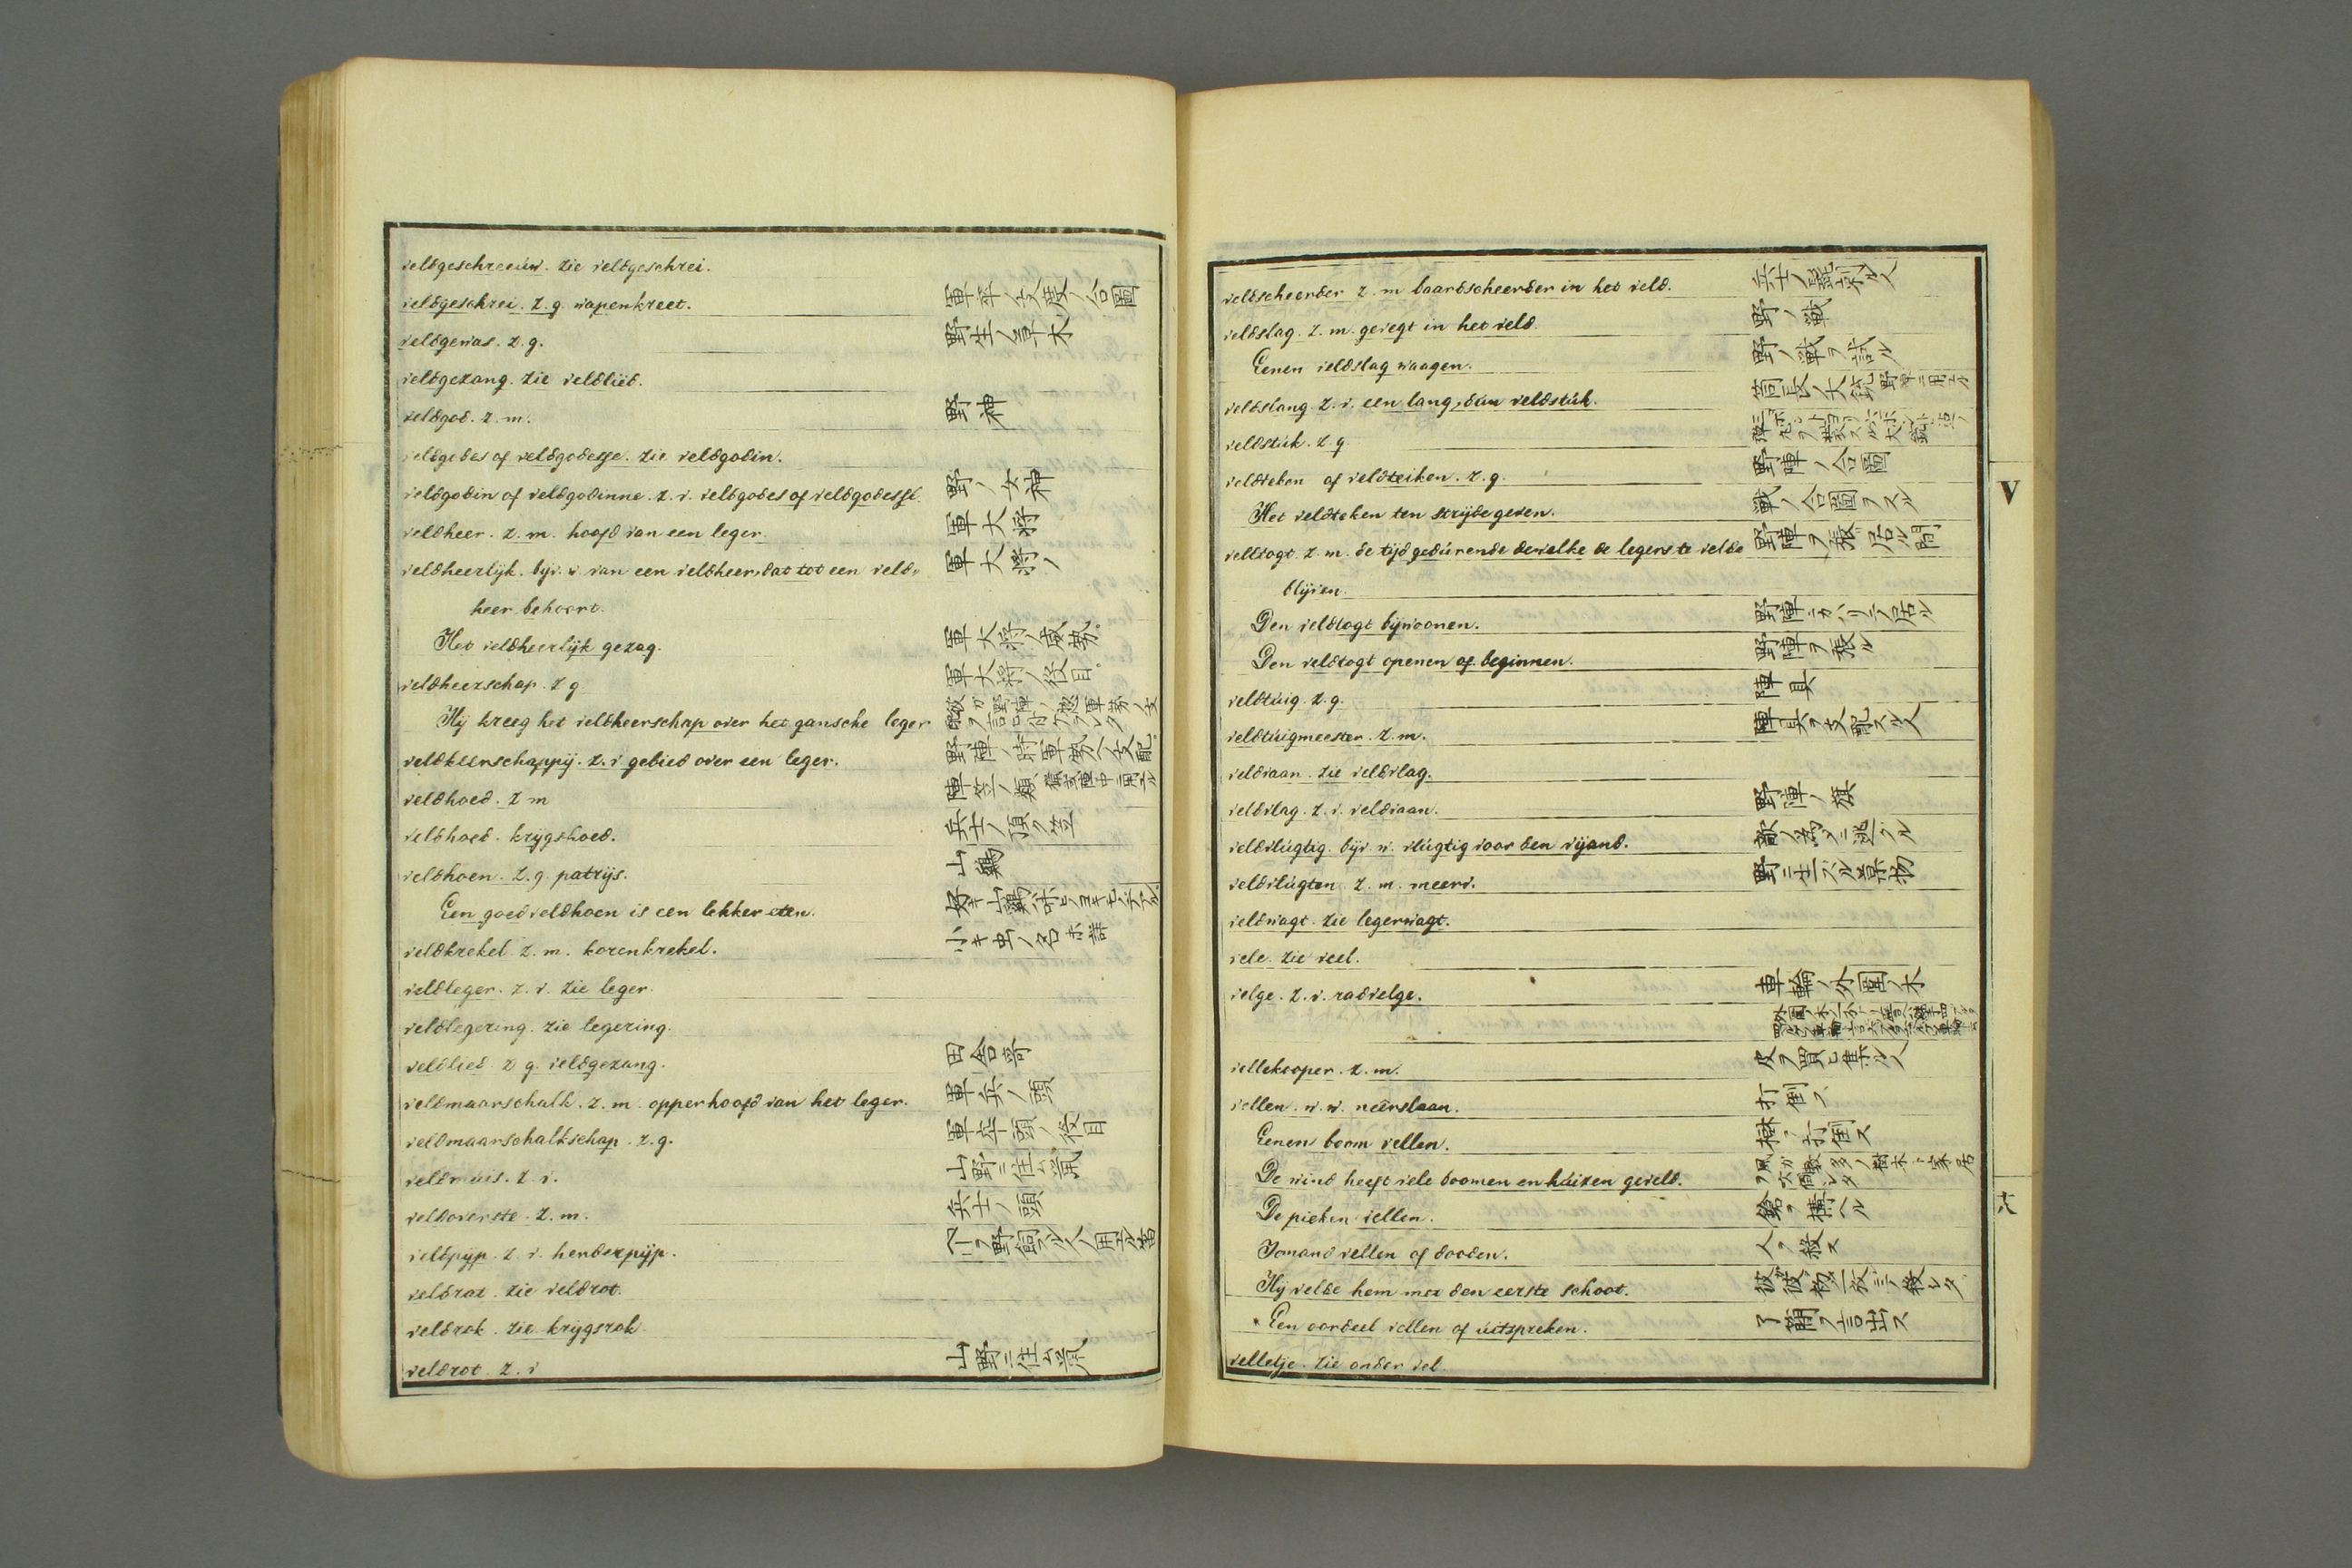 veldgeschreeúw. zie veldgeschrei.
veldgeschrei. z. g. wapenkreet. 軍卒ノ支度ノ合圖
veldgewas. z. g. 野生ノ草木
veldgezang. zie veldlied.
veldgod. z. m. 野神
veldgodes of veldgodesse. zie veldgodin.
veldgodin of veldgodinne. z. v. veldgodes of veldgodesse. 野ノ女神
veldheer. z. m. hoofd van een leger. 軍大将
veldheerlijk. bijv. w. van een veldheer, dat tot een veld„ 軍大将ノ
heer behoort.
Het veldheerlijk gezag. 軍大将ノ威勢
veldheerschap. z. g 軍大将ノ役目
Hij kreeg het veldheerschap over het gansche leger
veldheerschappij. z. v gebied over een leger. 野陣ノ時軍勢ノ支配
veldhoed. z m 陣笠ノ類
veldhoed. krijgshoed. 兵士ノ頂ク笠
veldhoen. z. g. patrijs. 山鷄
Een goed veldhoen is een lekker eten.
veldkrekel z. m. korenkrekel. 小キ虫ノ名未詳
veldleger. z. v. zie leger.
veldlegering. zie legering.
veldlied z g. veldgezang. 田舎哥
veldmaarschalk. z. m. opperhoofd van het leger. 軍兵ノ頭
veldmaarschalkschap. z. g. 軍卒頭ノ役目
veldmuis. z. v. 山野ニ住ム鼠
veldoverste. z. m. 兵士ノ頭
veldpijp. z. v. herderpijp.
veldrat. zie veldrot.
veldrok. zie krijgsrok.
veldrot. z. v 山野ニ住ム鼠
veldscheerder z. m baardscheerder in het veld. 兵士ノ髭剃ル人
veldslag. z. m. gevegt in het veld. 野ノ戦
Eenen veldslag waagen. 野ノ戦ヲ試ル
veldslang. z. v. een lang, dún veldstúk. 筒長ノ大銃野軍ニ用エル
veldstúk. z. g.
veldteken of veldteiken. z. g. 野陣ノ合圖
Het veldteken ten strijde geven. 戦ノ合圖ヲスル
veldtogt. z. m. de tijd gedúrende dewelke de legers te velde 野陣ヲ張居ル間
blijven.
Den veldtogt bijwoonen. 野陣ニカヽリテ居ル
Den veldtogt openen of beginnen. 野陣ヲ張ル
veldtúig. z. g. 陣具
veldtúigmeester. z. m. 陣具ヲ支配スル人
veldvaan. zie veldvlag.
veldvlag. z. v. veldvaan. 野陣ノ旗
veldvlúgtig. bijv. w. vlúgtig voor den vijand. 敵ノ為メニ逃グル
veldvlúgten. z. m. meerv. 野ニ生ズル菓物
veldwagt. zie legerwagt.
vele. zie veel.
velge. z. v. radvelge. 車輪ノ外圍ノ木
vellekooper. z. m. 皮ヲ買ヒ集ル人
vellen. w. w. neêrslaan. 打倒ス
Eenen boom vellen. 樹ヲ打倒ス
De wind heeft vele boomen en húizen geveld. 風ガ數多ノ樹木ト家居ヲ吹倒シタ
De pieken vellen. 鎗ヲ構ヘル
Iemand vellen of dooden. 人ヲ殺ス
Hij velde hem met den eerste schoot.
Een oordeel vellen of úitspreken. 了簡ヲ言出ス
velletje. zie onder vel
V
六